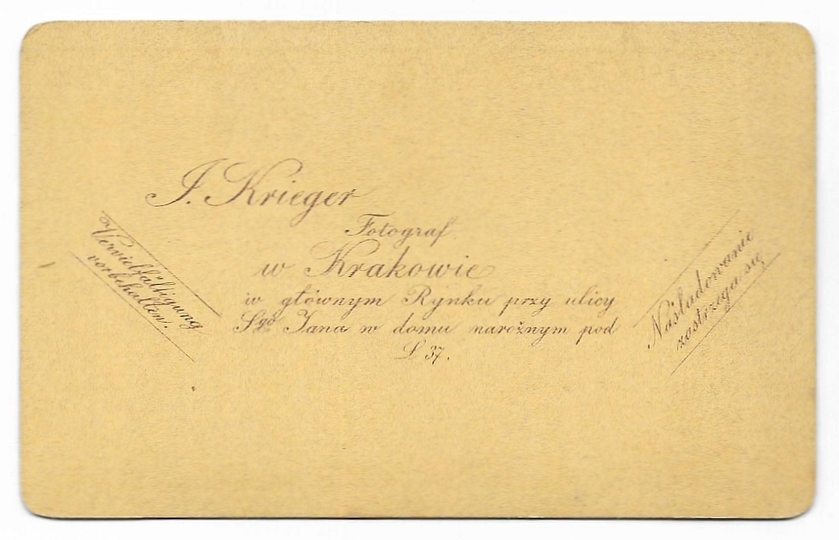 I. Krieger
Fotograf
w Krakowie
w głównym Rynku przy ulicy
Sgo Jana w domu narożnym pod
L 37.
Vervielfältigung
vorbehalten.
Naśladowanie
zastrzega się